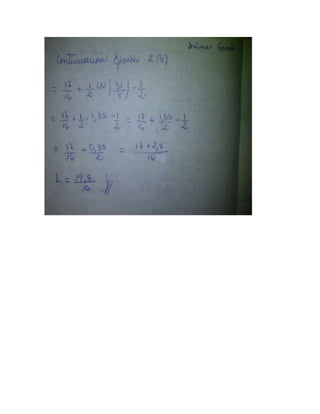 Continuación Ejercicio 2(b)
= 17/16 + 1/2 - 1/2
= 17/16 + 1/2 · 1,35 - 1/2 = 17/ + 1,35/2 - 1/2
= 17/16 + 0,35/2 = 17 + 2,8/16
L = 19,8/16